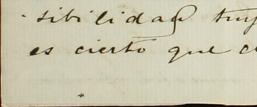 sibilidad
es cierto que